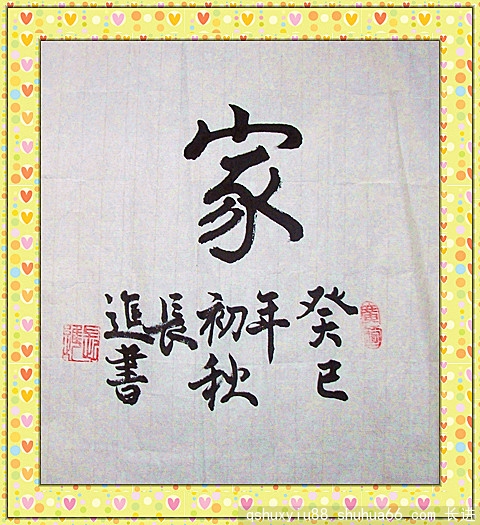 家
癸巳
年
初秋
長
進書
qshuxyiu88.shuhua66.com 长进